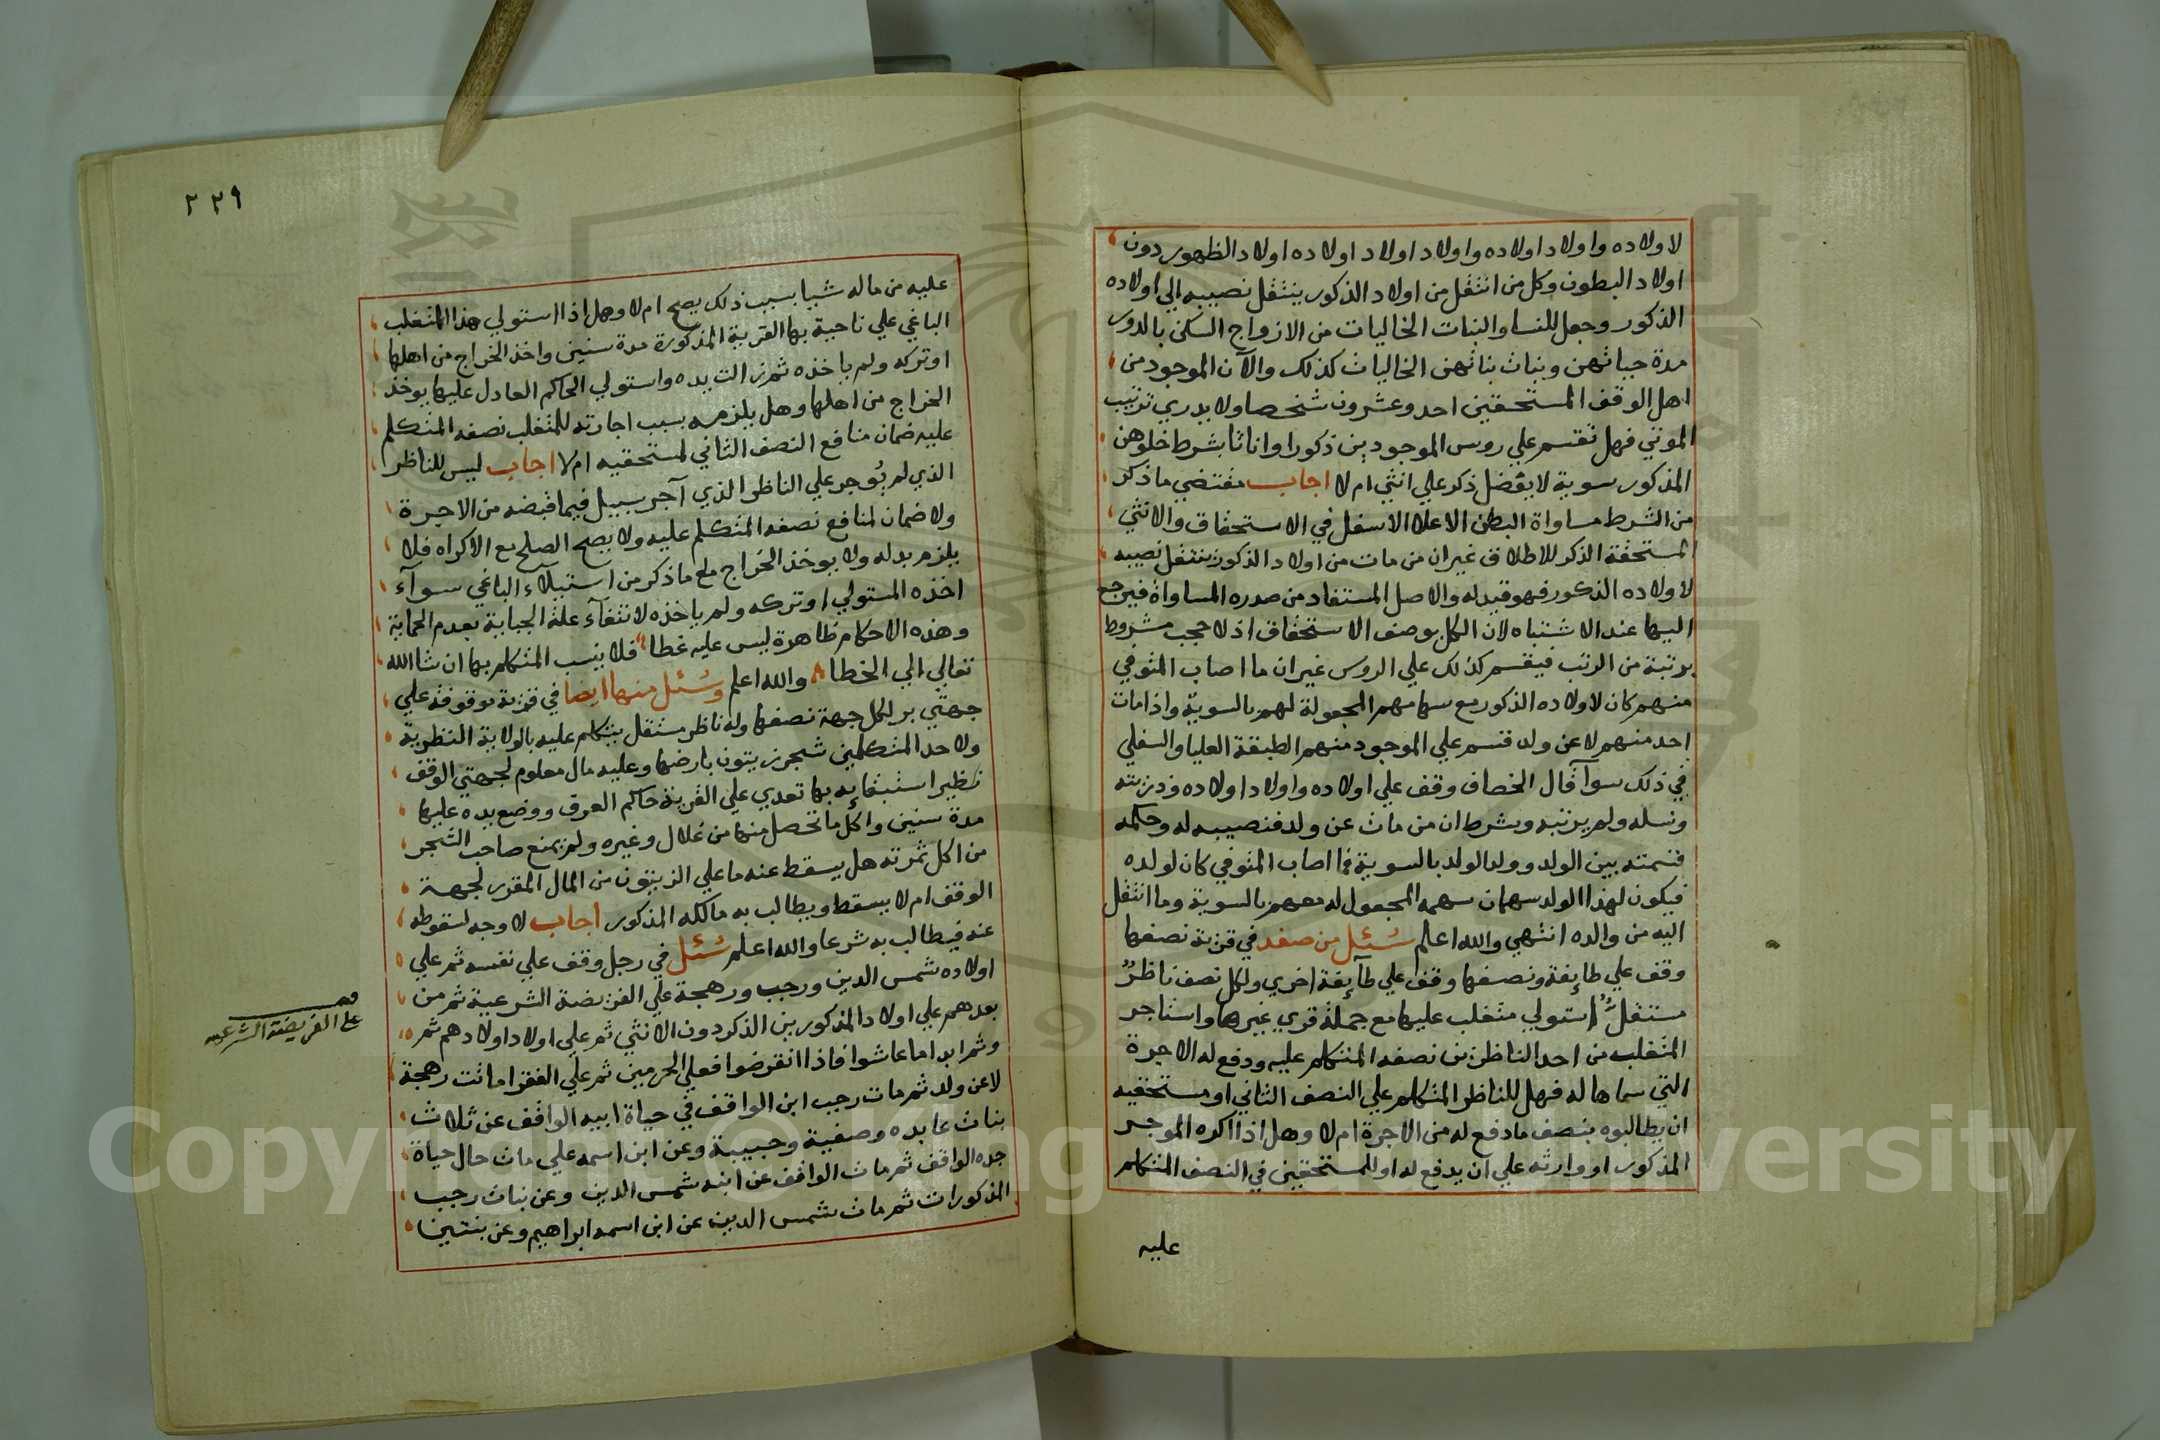 لاولاده واولاد اولاده واولاد اولاد اولاده اولاد الظهور دون
اولاد البطون وكل من انتقل من اولاد الذكور ينتقل نصيبه الي اولاده
الذكور وجعل للنسا والبنات الخاليات من الازواج السكن بالدور
مدة حياتهن وبنات بناتهن الخاليات كذلك والآن الموجود من
اهل الوقف المستحقين احد وعشرون شخصا ولا يدري ترتيب
الموتي فهل تقسم علي روس الموجودين ذكورا واناثا بشرط خلوهن
المذكور سوية لا يفضل ذكر علي انثي ام لا اجاب مقتضي ما ذكر
من الشرط مساواة البطن الاعلا الاسفل في الاستحقاق والانثي
المستحقة الذكر للاطلاق غير ان من مات من اولاد الذكور ينتقل نصيبه
لاولاده الذكور فهو قيد له والاصل المستفاد من صدره المساواة فيرجع
اليها عند الاشتباه لان الكل بوصف الاستحقاق اذ لا حجب مشروط
برتبة من الرتب فيقسم كذلك علي الروس غير ان ما اصاب المتوفي
منهم كان لاولاده الذكور مع سهامهم المجعولة لهم بالسوية واذا مات
احد منهم لا عن ولد قسم علي الموجود منهم الطبقة العليا والسفلي
في ذلك سوآ قال الخصاف وقف علي اولاده واولاد اولاده وذريته
ونسله ولم يرتبه وبشرط ان من مات عن ولد فنصيبه له وحكمه
قسمته بين الولد وولد الولد بالسوية فما اصاب المتوفي كان لولده
فيكون لهذا الولد سهمان سهمه المجعول له معهم بالسوية وما انتقل
اليه من والده انتهي والله اعلم سُئل من صفد في قرية نصفها
وقف علي طايفة ونصفها وقف علي طآيفة اخري ولكل نصف ناظرٌ
مستقلٌ استولي متغلب عليها مع جملة قري غيرها واستاجر
المتغلب من احد الناظرين نصفه المتكلم عليه ودفع له الاجرة
التي سماها له فهل للناظر المتكلم علي النصف الثاني او مستحقيه
ان يطالبوه بنصف ما دفع له من الاجرة ام لا وهل اذا اكره الموجر
المذكور او وارثه علي ان يدفع له او للمستحقين في النصف المتكلم
عليه
٢٢٩
عليه من ماله شيا بسبب ذلك يصح ام لا وهل اذا استولي هذا المتغلب
الباغي علي ناحية بها القرية المذكورة مدة سنين واخذ الخراج من اهلها
او تركه ولم ياخذه ثم زالت يده واستولي الحاكم العادل عليها يوخذ
الخراج من اهلها وهل يلزمه بسبب اجارته للمتغلب نصفه المتكلم
عليه ضمان منافع النصف الثاني لمستحقيه ام لا اجاب ليس للناظر
الذي لم يُوجر علي الناظر الذي آجر سبيل فيما قبضه من الاجرة
ولا ضمان لمنافع نصفه المتكلم عليه ولا يصح الصلح مع الاكراه فلا
يلزم بدله ولا يوخذ الخراج مع ما ذكر من استيلآء الباغي سوآء
اخذه المستولي او تركه ولم ياخذه لانتفآء علة الجباية بعدم الحماية
وهذه الاحكام ظاهرة ليس عليه غطا فلا ينسب المتكلم بها ان شا الله
تعالي الي الخطا والله اعلم وسُئل منها ايضا في قرية موقوفة علي
جهتي بر لكل جهة نصفها وله ناظر مستقل يتكلم عليه بالولاية النظرية
ولاحد المتكلمين شجر زيتون بارضها وعليه مال معلوم لجهتي الوقف
نظير استبقايه بها تعدي علي القرية حاكم العرف ووضع يده عليها
مدة سنين واكل ما تحصل منها من غلال وغيره ولم يمنع صاحب الشجر
من اكل ثمرته هل يسقط عنه ما علي الزيتون من المال المقدر لجهة
الوقف ام لا يسقط ويطالب به مالكه المذكور اجاب لا وجه لسقوطه
عنه فيطالب به شرعا والله اعلم سُئل في رجل وقف علي نفسه ثم علي
اولاده شمس الدين ورجب ورهجة علي الفريضة الشرعية ثم من
بعدهم علي اولاد المذكورين الذكر دون الانثي ثم علي اولاد اولادهم ثم
وثم ابدا ما عاشوا فاذا انقرضوا فعلي الحرمين ثم علي الفقرا ماتت رهجة
لا عن ولد ثم مات رجب ابن الواقف في حياة ابيه الواقف عن ثلاث
بنات عابده وصفية وحبيبة وعن ابن اسمه علي مات حال حياة
جده الواقف ثم مات الواقف عن ابنه شمس الدين وعن بنات رجب
المذكورات ثم مات شمس الدين عن ابن اسمه ابراهيم وعن بنتين
علي الفريضة الشرعية
Copyright © King Saud University